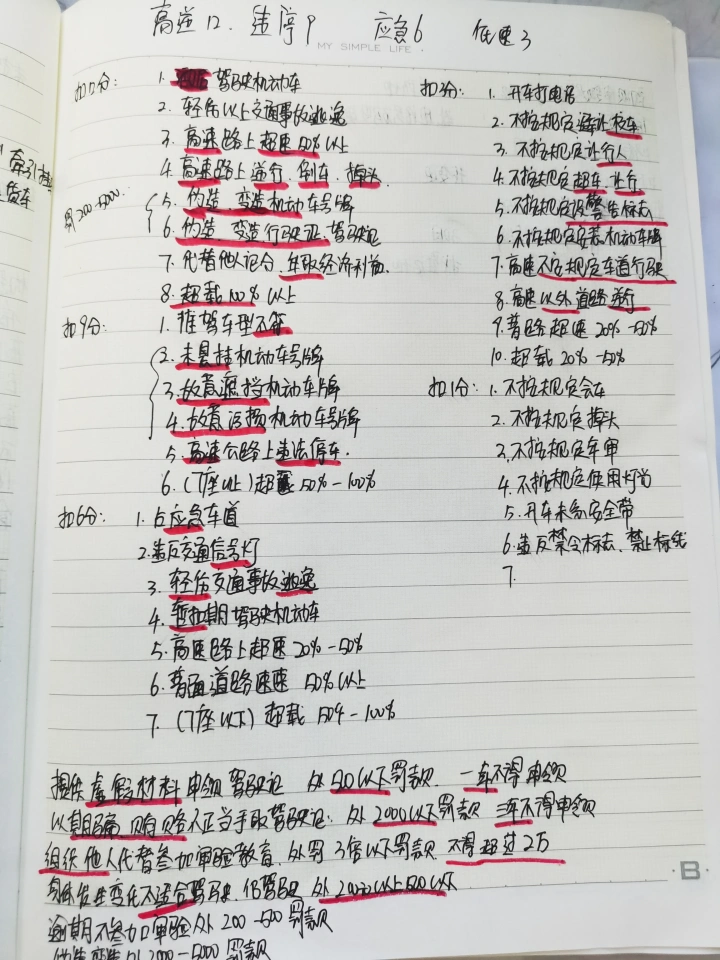 高逆12. 违停9 应急6 低速3
MY SIMPLE LIFE
扣12分: 1. 驾驶机动车
2. 轻伤以上交通事故逃逸
3. 高速路上超速50%以上
4. 高速路上逆行、倒车、掉头
罚200-5000. 5. 伪造、变造机动车号牌
6. 伪造、变造行驶证、驾驶证
7. 代替他人记分,牟取经济利益
8. 超载100%以上
扣9分: 1. 准驾车型不符
2. 未悬挂机动车号牌
3. 故意遮挡机动车牌
4. 故意污损机动车号牌
5. 高速公路上违法停车.
6. (7座以上)超载50%-100%
扣6分: 1. 占应急车道
2. 违反交通信号灯
3. 轻伤交通事故逃逸
4. 暂扣期驾驶机动车
5. 高速路上超速20%-50%
6. 普通道路超速50%以上
7. (7座以下)超载50%-100%
扣3分: 1. 开车打电话
2. 不按规定避让校车
3. 不按规定让行人
4. 不按规定超车、让行
5. 不按规定设警告标志
6. 不按规定安装机动车牌
7. 高速不按规定车道行驶
8. 高速以外道路逆行
9. 普路超速20%-50%
10. 超载20%-50%
扣1分: 1. 不按规定会车
2. 不按规定掉头
3. 不按规定年审
4. 不按规定使用灯光
5. 开车未系安全带
6. 违反禁令标志、禁止标线
7.
提供虚假材料申领驾驶证 处500以下罚款 一年不得申领
以欺骗、贿赂不正当手取驾驶证: 处2000以下罚款 三年不得申领
组织他人代替参加审验教育、处罚3倍以下罚款 不得超过2万
身体发生变化不适合驾驶 仍驾驶 处200以上500以下
逾期不参加审验处200-500罚款
伪造变造处2000-5000罚款
牵引挂
货车
B